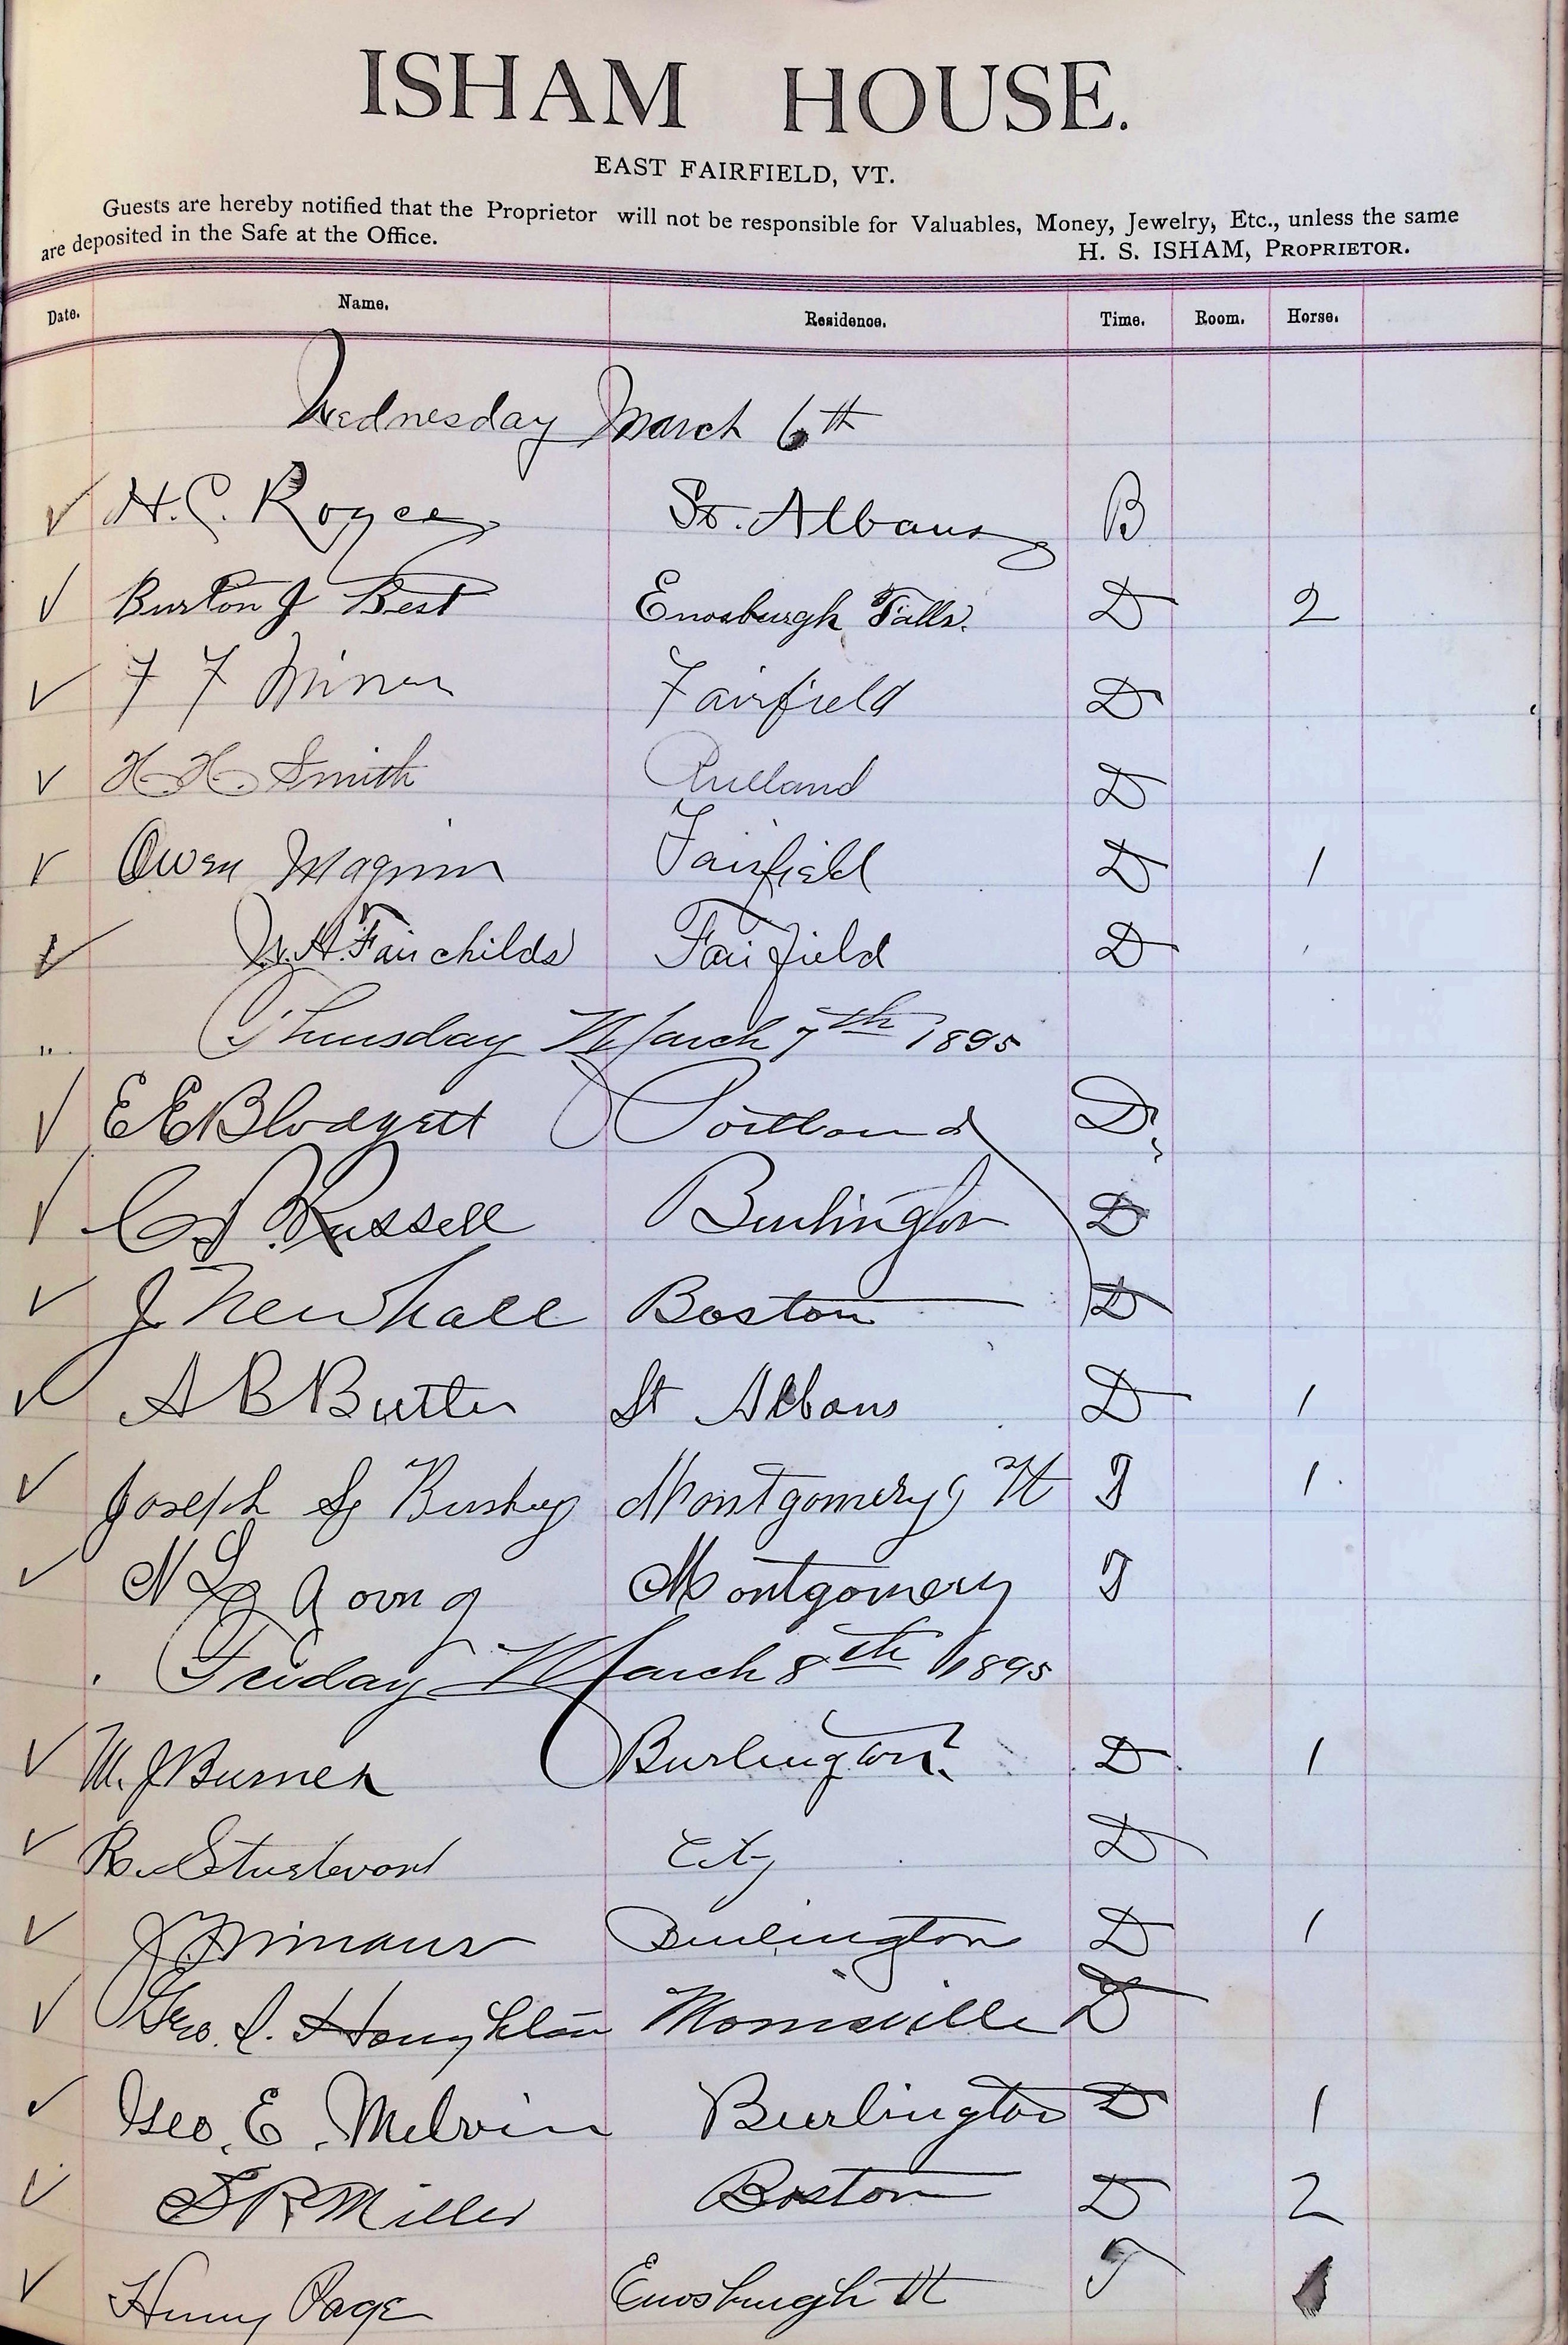 ISHAM HOUSE.
EAST FAIRFIELD, VT.
Guests are hereby notified that the Proprietor will not be responsible for Valuables, Money, Jewelry, Etc., unless the same
are deposited in the Safe at the Office.
H. S. ISHAM, PROPRIETOR.
Date. Name. Residence. Time. Room. Horse.
Wednesday March 6th
H. C. Royce St. Albans B
Burton J Best Enosburgh Falls. D 2
F F Minor Fairfield D
H H Smith Rutland D
Owen Maginn Fairfield D 1
Fairchilds Fairfield D
Thursday March 7th 1895
E E Blodgett Portland D
Russell Burlington D
J Newhall Boston D
A B Butler St Albans D 1
Joseph Bushey Montgomery Vt T 1
N L Montgomery T
Friday March 8th 1895
M. J Burner Burlington. D 1
R. Sturtevant City D
Burlington D 1
Geo. Houghton Morrisville D
Geo. E. Melvin Burlington D 1
Miller Boston D 2
Henry Page Enosburgh Vt T